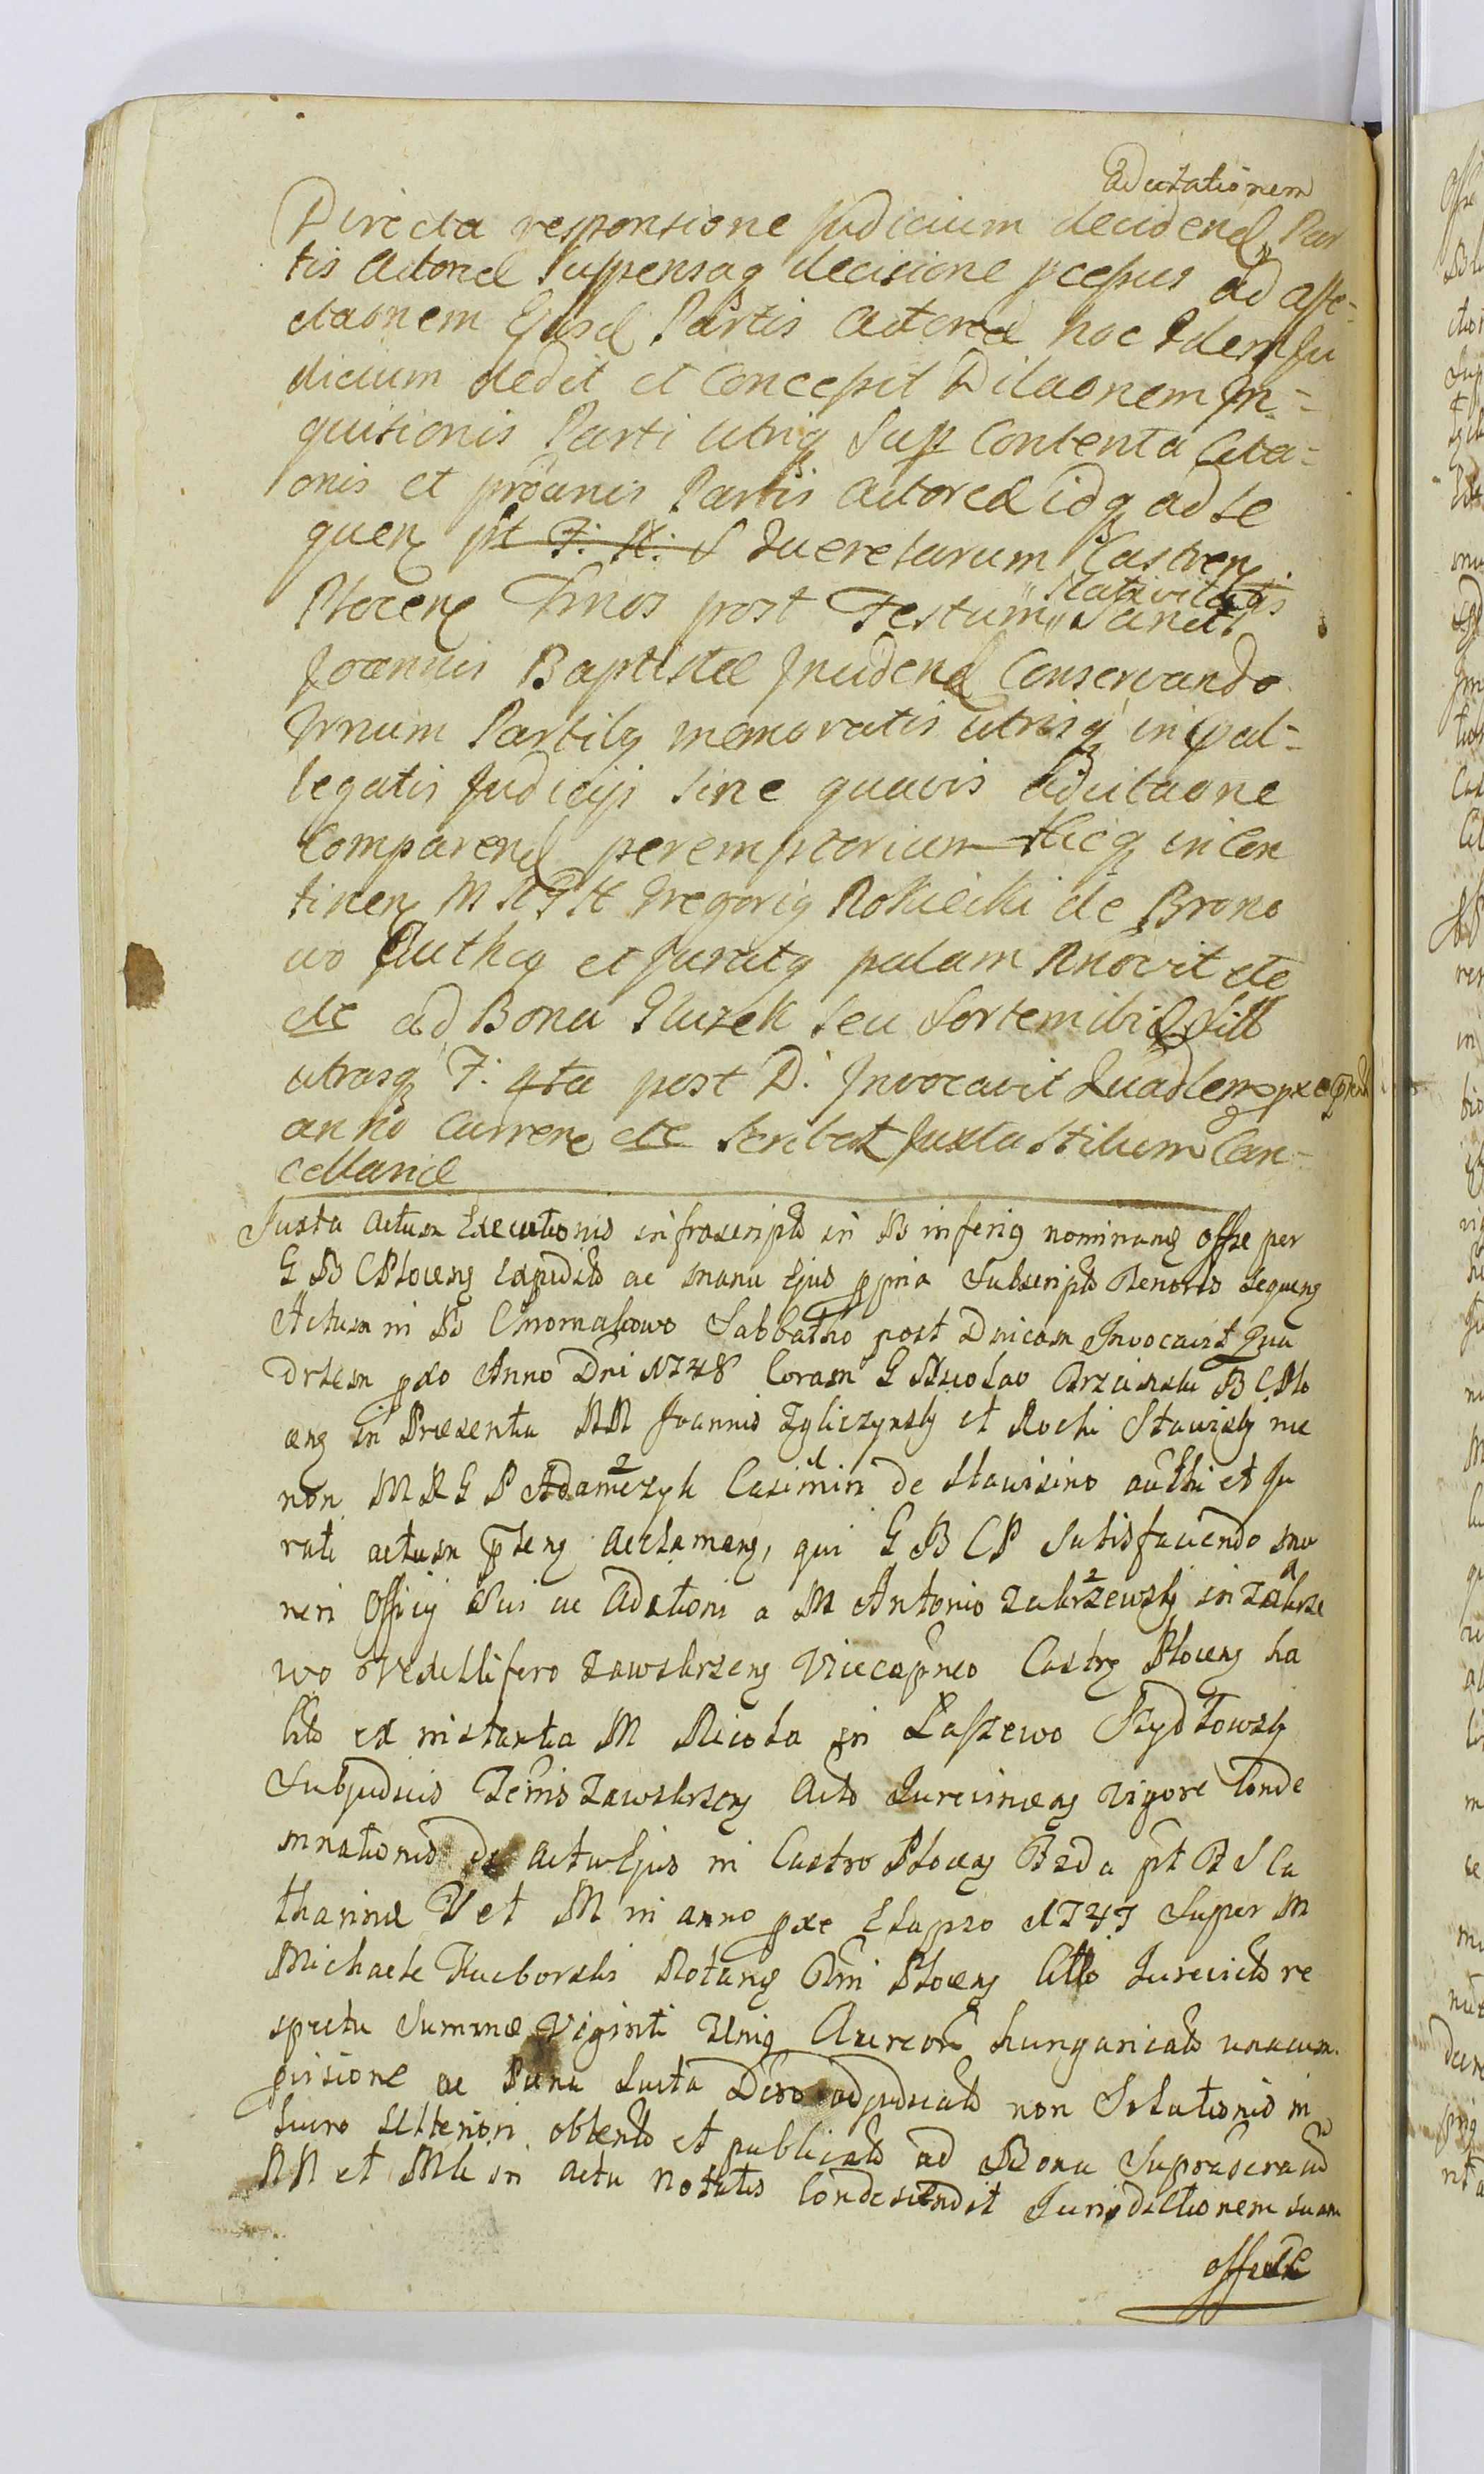 adcitationem
Directa responsione Judicium decidend Par
tis Actoreæ suspensaq decisione pcessus ad affe-
ctaonem Ejusd Partis Actoreæ hoc Idem Ju
dicium dedit et Concessit Dilaonem In-
quisitionis Parti utriq Sup Contenta Cita-
onis et Partis Actoreæ idq ad se
quen pt F. N. S Querelarum Castren
Plocen Tmos post Festum Nativitatis Sancti
Joannis Baptistæ Incidend Conservando
Trnum Partibq memoratis utrisq in
legatis Judicijs sine quavis adcitaone
Comparend peremptorium Hicq in Con
tinen M R G H Gregoriq Rokicki de Brono
wo Authcq et Juratq palam Rnovit etc
etc ad Bona Gluzek seu Sortem ibid
utrasq F. 4ta post D. Invocavit Quadlem pxe
anno Curren etc Scribat Juxta Stilum Can-
cellariæ
Juxta Actum Executionis infrascripto in B inferiq nominang Offse per
G B C Ploceng Expedito ac manu Ejus ppria Subscripto Tenoris Sequeng
Actum in B Chromakowo Sabbatho post Dnicam Invocavit Qua
drlem pxo Anno Dni 1748 Coram G Nicolao B C Plo
ceng in Præsentia NN Joannis Zgliczynsky et Rochi Stawisky nec
non M R G P Adamczyk Casimiri de Stawisino authi et Ju
rati actum pteng acclamang, qui G B C P Satisfaciendo mu
neri Officij Sui ac Adcitationi a M Antonio Zakrzewsky in Zakrze
wo Vexillifero Zawskrzeng Vicecapneo Castrg Ploceng ha
bito ex instantia M Nicola in Laszewo Szydłowsky
Subjudicis Terris Zawskrzeng Acto Jurevinceng vigore Conde
mnationis de actu Ejus in Castro Ploceng Fda pt F S Ca
tharinæ V et M in anno pxe Elapso 1747 Super M
Michaele Kucborski Notang Tri Ploceng Citto Jurevicto re
spectu Summæ Viginti Unig Aureor hungaricals unacum
pvisione ac Pæna Lucta Dco adjudicato non Solutionis in
Lucro Ulteriori obtento et publicato ad Bona Suprascrand
NN et Mli in actu notatis Condescendit Jurisdictionem suam
offse